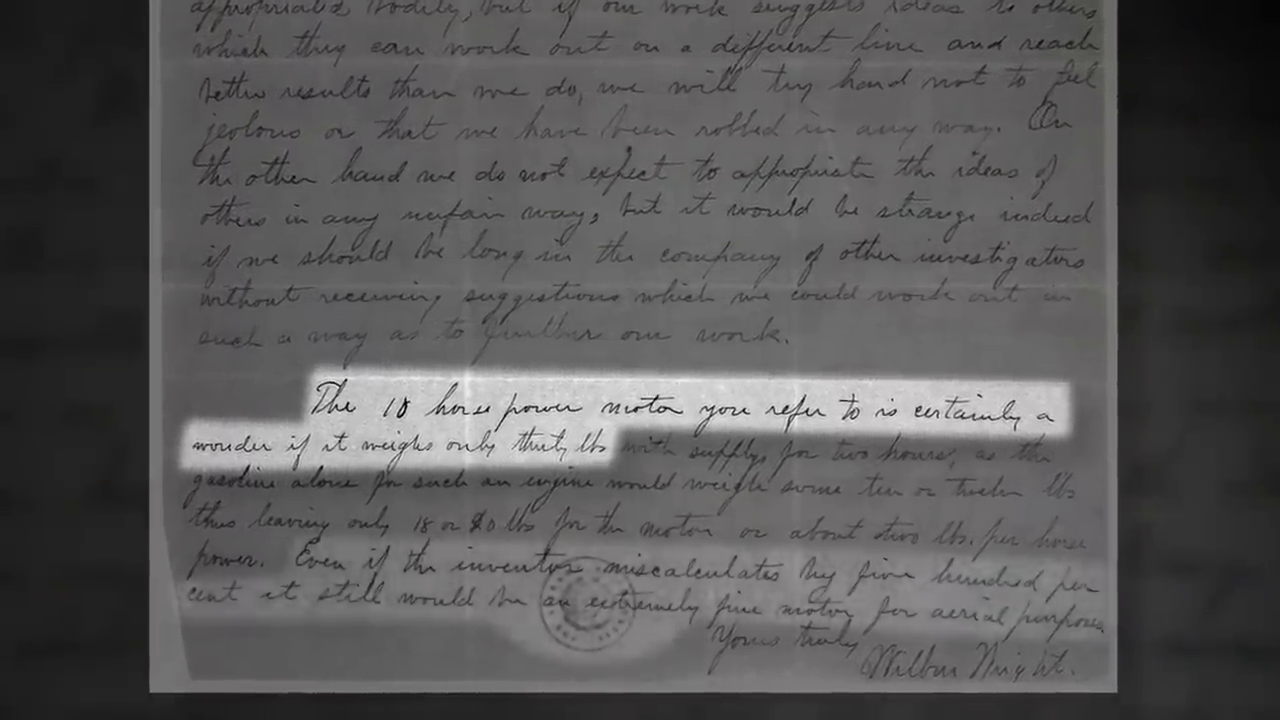 appropriated bodily, but if our work suggests ideas to others
which they can work out on a different line and reach
better results than we do, we will try hard not to feel
jealous or that we have been robbed in any way. On
the other hand we do not expect to appropriate the ideas of
others in any unfair way, but it would be strange indeed
if we should be long in the company of other investigators
without receiving suggestions which we could work out in
such a way as to further our work.
The 10 horse power motor you refer to is certainly a
wonder if it weighs only thirty lbs with supplys for two hours, as the
gasoline alone for such an engine would weigh some ten or twelve lbs
thus leaving only 18 or 20 lbs for the motor or about two lbs. per horse
power. Even if the inventor miscalculates by five hundred per
cent it still would be an extremely fine motor for aerial purposes
Yours truly
Wilbur Wright.